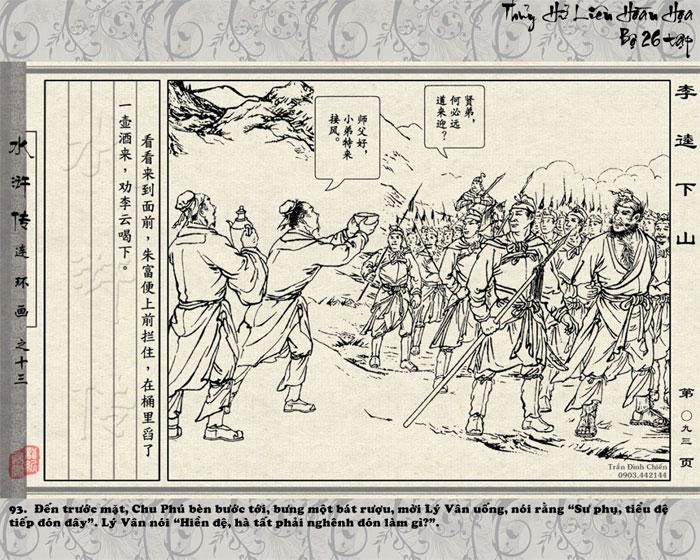 Thủy Hử Liên Hoàn Họa
Bộ 26 tập
李逵下山
第〇九三页
水浒传连环画之十三
水浒传
看看来到面前，朱富便上前拦住，在桶里舀了
一壶酒来，劝李云喝下。
师父好，
小弟特来
接风。
贤弟，
何必远
道来迎？
Trần Đình Chiến
0903.442144
93. Đến trước mặt, Chu Phú bèn bước tới, bưng một bát rượu, mời Lý Vân uống, nói rằng “Sư phụ, tiểu đệ
tiếp đón đây”. Lý Vân nói “Hiền đệ, hà tất phải nghênh đón làm gì?”.